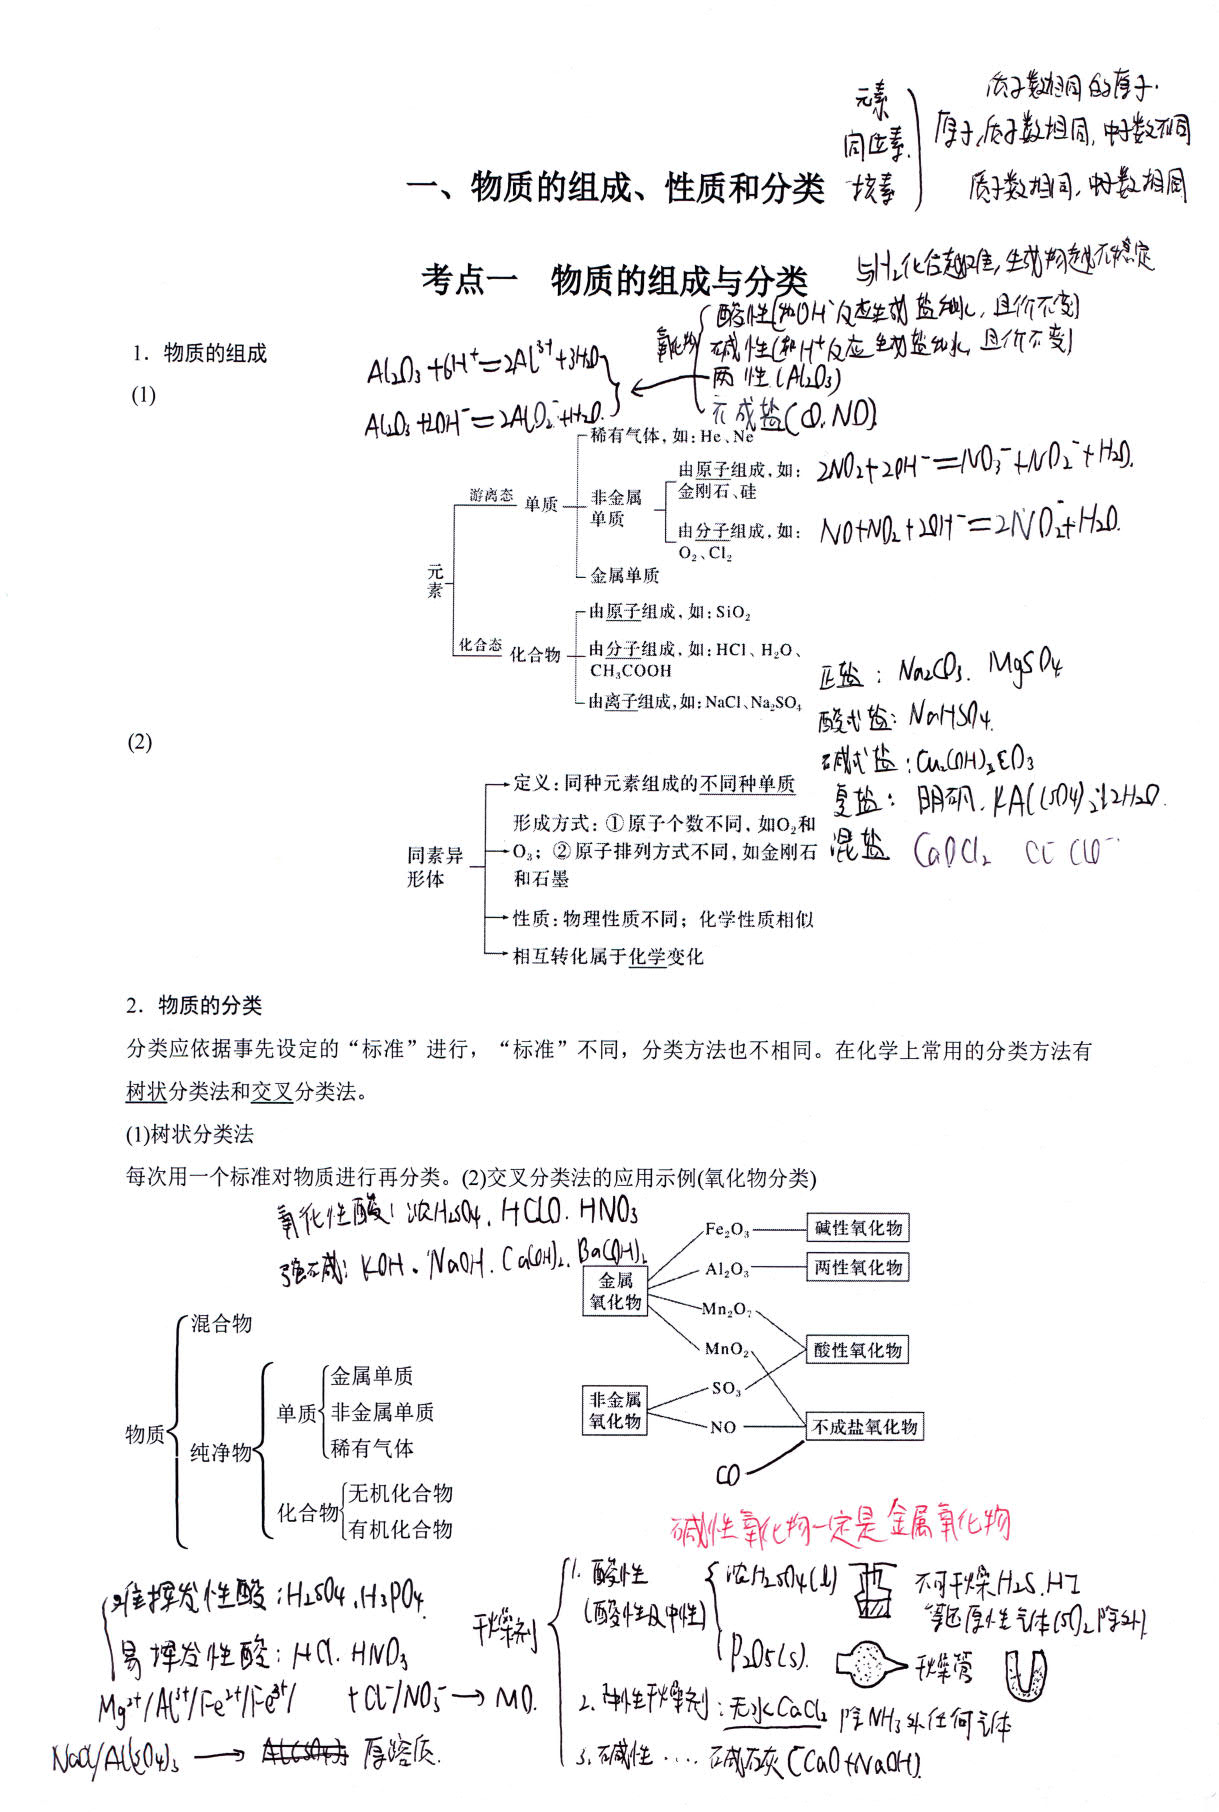 元素 质子数相同的原子.
同位素. 原子,质子数相同,中子数不同
核素 质子数相同,中子数相同
一、物质的组成、性质和分类
与H₂化合越难,生成物越不稳定
考点一 物质的组成与分类
氧化物
酸性(和OH⁻反应生成盐和水,且价不变)
碱性(和H⁺反应生成盐和水,且价不变)
两性(Al₂O₃)
不成盐(CO,NO)
1．物质的组成
Al₂O₃+6H⁺=2Al³⁺+3H₂O
(1)
Al₂O₃+2OH⁻=2AlO₂⁻+H₂O.
稀有气体，如：He、Ne
由原子组成，如：
金刚石、硅
2NO₂+2OH⁻=NO₃⁻+NO₂⁻+H₂O.
游离态 单质 非金属
单质
由分子组成，如：
O₂、Cl₂
NO+NO₂+2OH⁻=2NO₂⁻+H₂O.
金属单质
元
素
由原子组成，如：SiO₂
化合态 化合物 由分子组成，如：HCl、H₂O、
CH₃COOH
由离子组成，如：NaCl、Na₂SO₄
正盐：Na₂CO₃. MgSO₄
酸式盐：NaHSO₄.
碱式盐：Cu₂(OH)₂CO₃
复盐：明矾. KAl(SO₄)₂·12H₂O.
混盐 CaOCl₂ Cl⁻ ClO⁻
(2)
定义：同种元素组成的不同种单质
形成方式：①原子个数不同，如O₂和
O₃；②原子排列方式不同，如金刚石
和石墨
同素异
形体
性质：物理性质不同；化学性质相似
相互转化属于化学变化
2．物质的分类
分类应依据事先设定的“标准”进行，“标准”不同，分类方法也不相同。在化学上常用的分类方法有
树状分类法和交叉分类法。
(1)树状分类法
每次用一个标准对物质进行再分类。(2)交叉分类法的应用示例(氧化物分类)
氧化性酸：浓H₂SO₄. HClO. HNO₃
强碱：KOH. NaOH. Ca(OH)₂. Ba(OH)₂
金属
氧化物
Fe₂O₃ 碱性氧化物
Al₂O₃ 两性氧化物
Mn₂O₇
MnO₂ 酸性氧化物
非金属
氧化物
SO₃
NO 不成盐氧化物
CO
混合物
物质
纯净物
单质
金属单质
非金属单质
稀有气体
化合物
无机化合物
有机化合物
碱性氧化物一定是金属氧化物
难挥发性酸：H₂SO₄.H₃PO₄.
易挥发性酸：HCl. HNO₃
Mg²⁺/Al³⁺/Fe²⁺/Fe³⁺/ +Cl⁻/NO₃⁻→MO.
NaCl/Al₂(SO₄)₃ → 原溶质.
干燥剂
1. 酸性
(酸性及中性)
浓H₂SO₄(l)
不可干燥H₂S.HI
等还原性气体(SO₂除外).
P₂O₅(s).
干燥管
2. 中性干燥剂：无水CaCl₂ 除NH₃外任何气体
3. 碱性.... 碱石灰(CaO+NaOH).